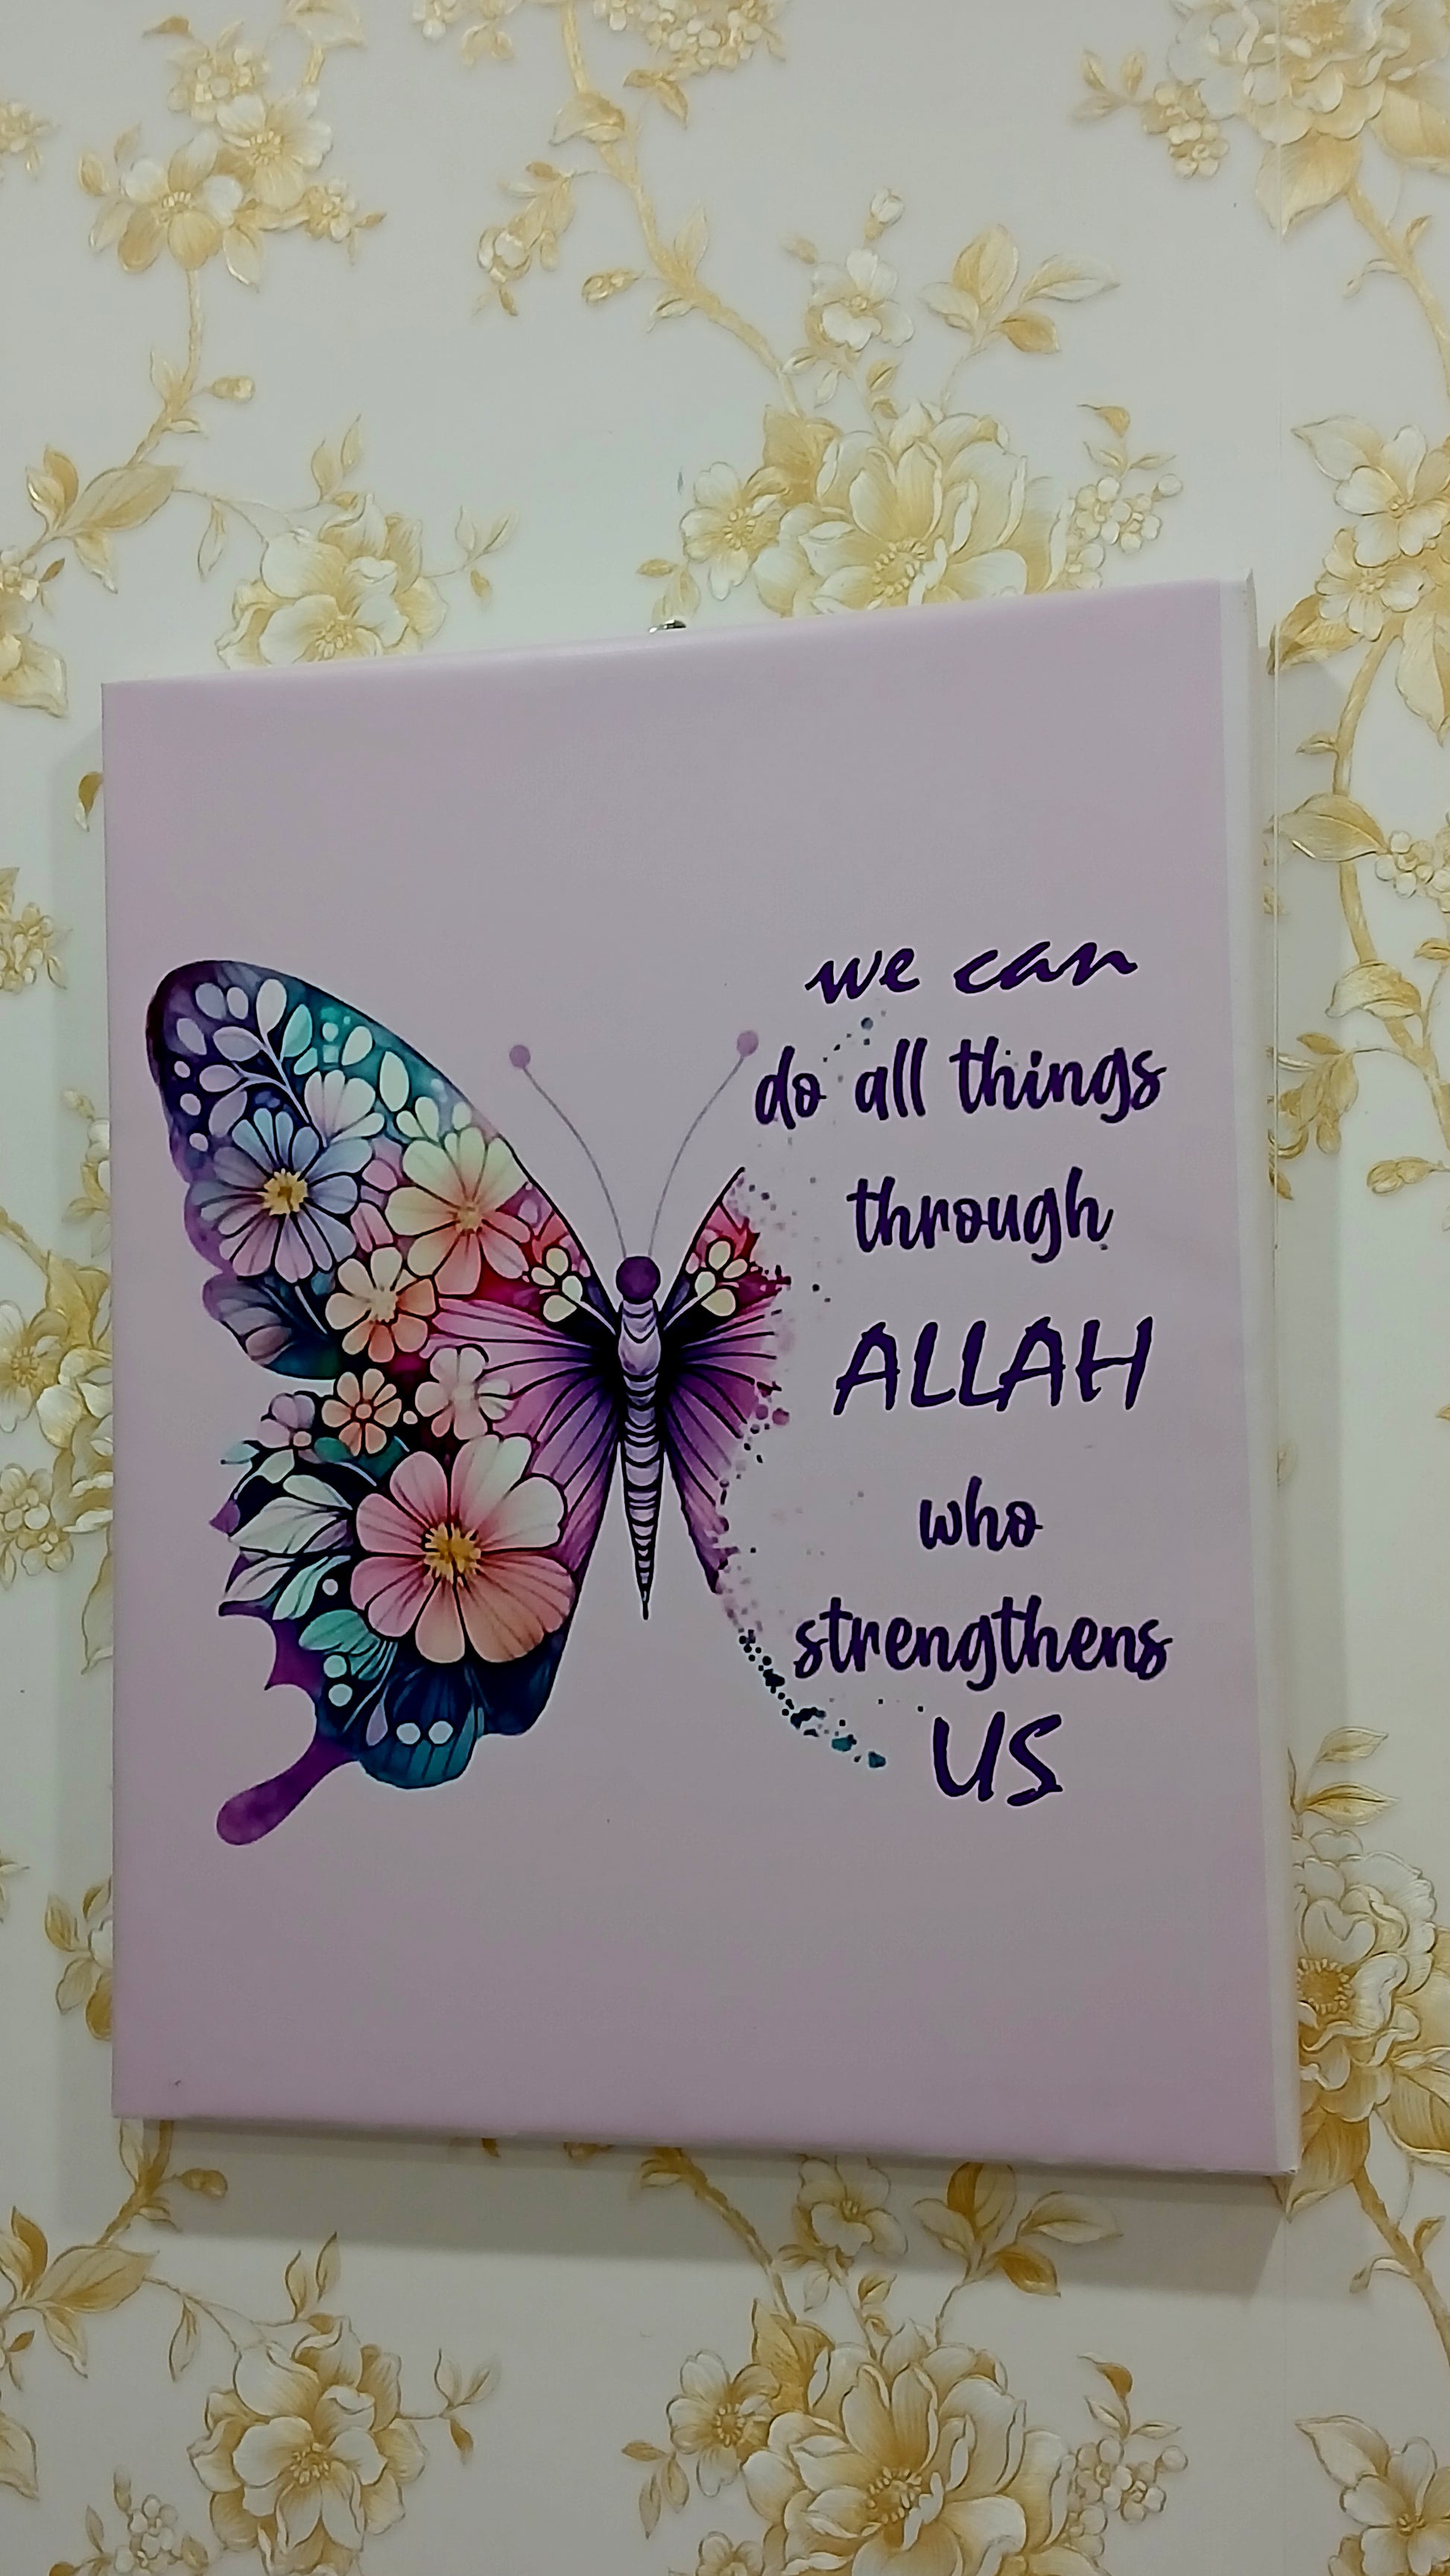 we can
do all things
through
ALLAH
who
strengthens
US